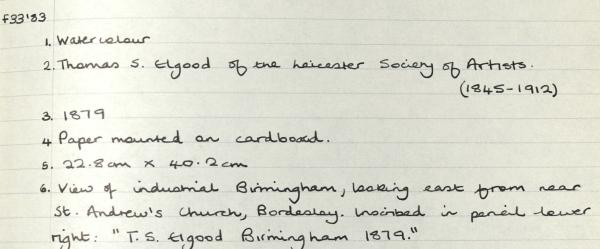 F33'83
1. Watercolour
2. Thomas S. Elgood of the Leicester Society of Artists.
(1845-1912)
3. 1879
4 Paper mounted on cardboard.
5. 22.8cm x 40.2cm
6. View of industrial Birmingham, looking east from near
St. Andrew's Church, Bordesley. Inscribed in pencil lower
right: "T. S. Elgood Birmingham 1879."